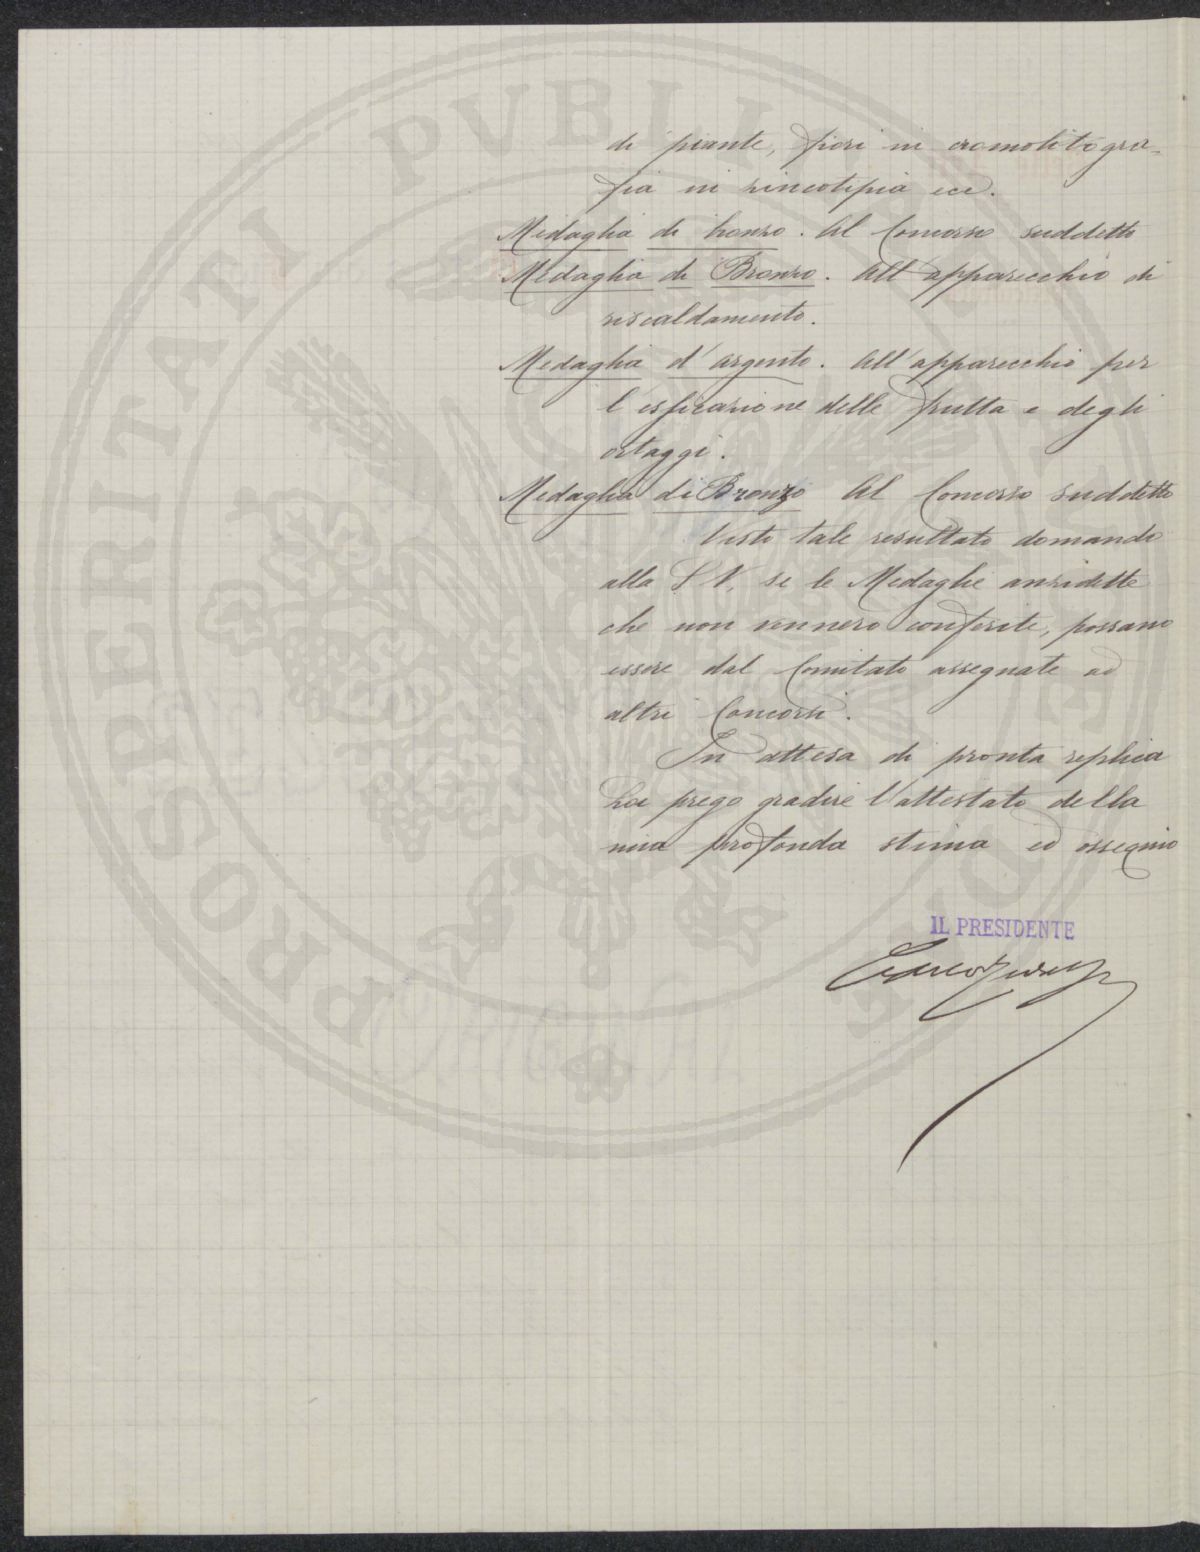 di piante, fiori in cromolitogra-
fia in zincotipia ecc.
Medaglia di bronzo. Al Concorso suddetto
Medaglia di Bronzo. All'apparecchio di
riscaldamento.
Medaglia d'argento. All'apparecchio per
l'essicazione delle frutta e degli
ortaggi.
Medaglia di Bronzo Al Concorso suddetto
Visto tale resultato domando
alla S V. se le Medaglie anzidette
che non vennero conferite, possano
essere dal Comitato assegnate ad
altri Concorsi.
In attesa di pronta replica
La prego gradire l'attestato della
mia profonda stima ed ossequio
IL PRESIDENTE
PROSPERITATI PVBLI